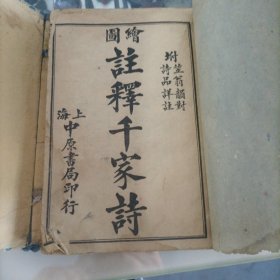 繪圖
坿笠翁韻對
詩品詳註
註釋千家詩
上海
中原書局印行